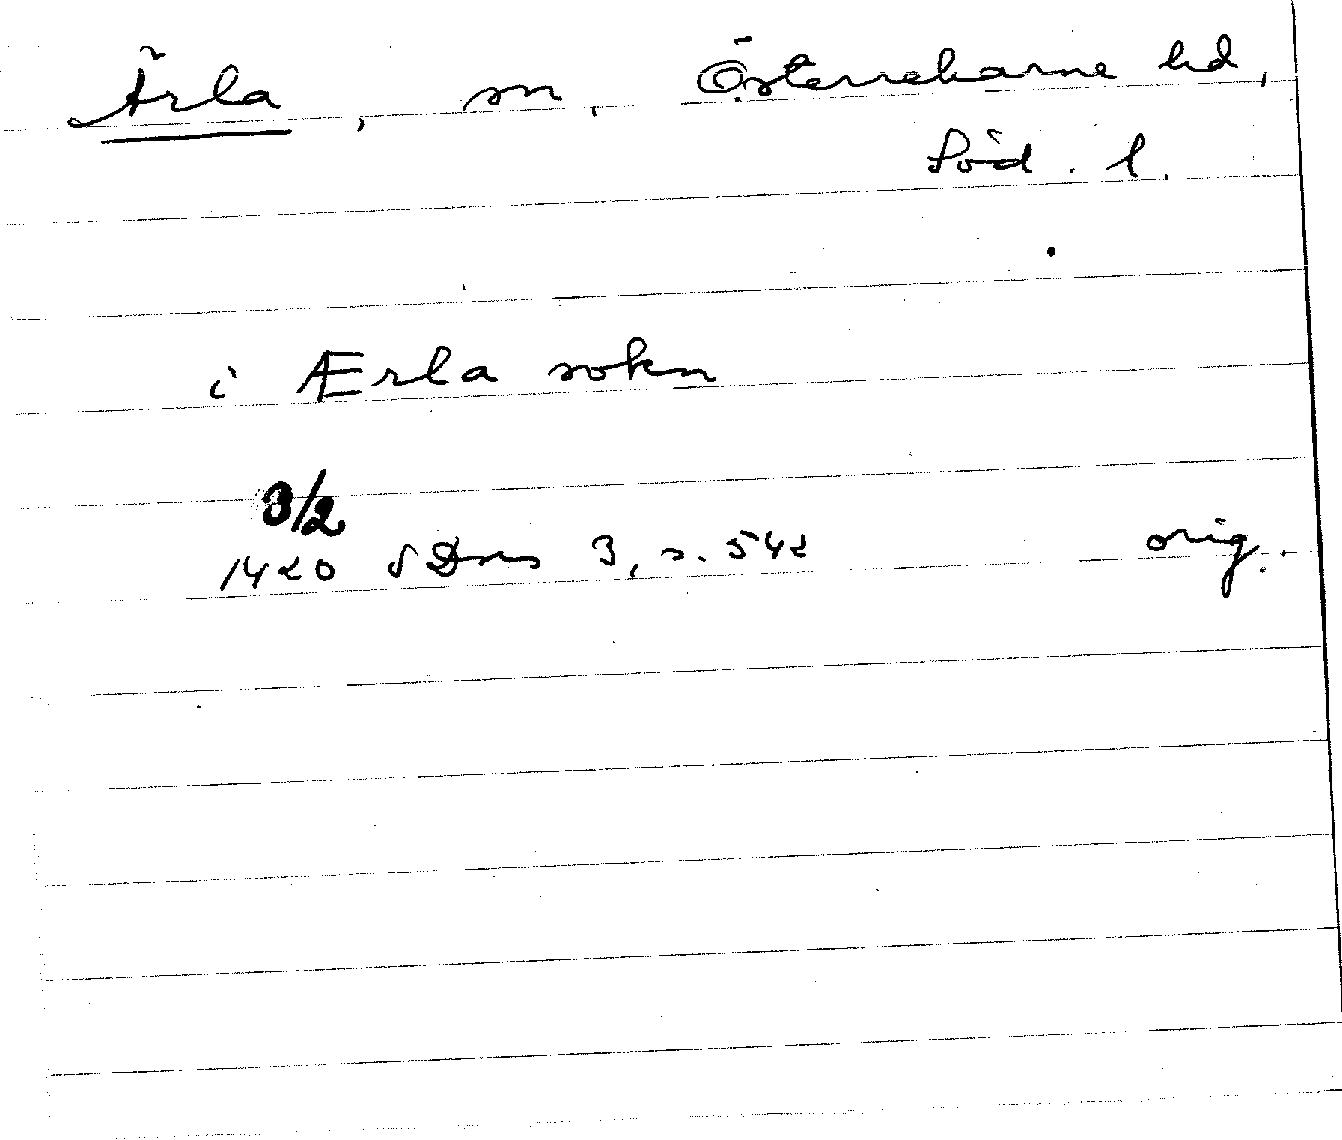 Ärla, sn, Österrekarne hd,
Söd. l.
i Ærla sokn
3/2
1420 SDns 3, s. 542 orig.